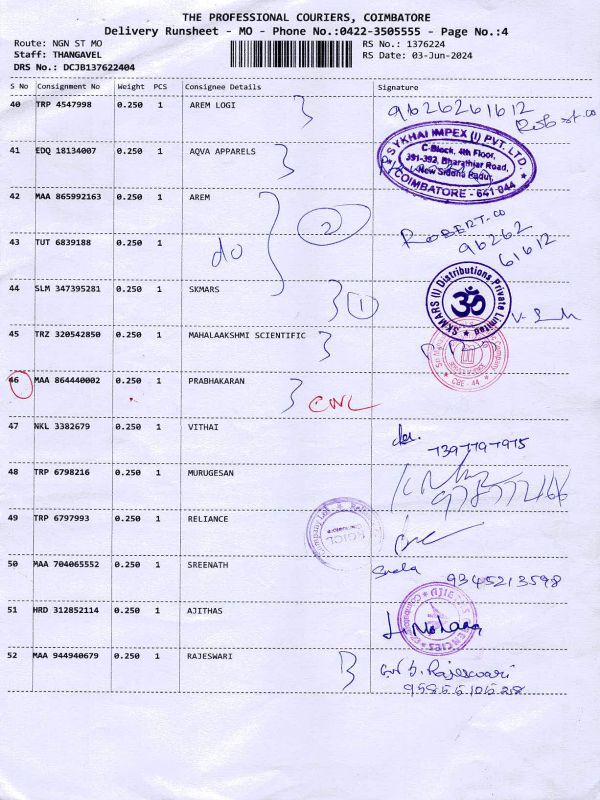 THE PROFESSIONAL COURIERS, COIMBATORE
Delivery Runsheet - MO - Phone No.:0422-3505555 - Page No.:4
Route: NGN ST MO
RS No.: 1376224
Staff: THANGAVEL
RS Date: 03-Jun-2024
DRS No.: DCJB137622404
S No Consignment No Weight PCS Consignee Details Signature
40 TRP 4547998 0.250 1 AREM LOGI
9626261612
41 EDQ 18134007 0.250 1 AQVA APPARELS
SYKHAI IMPEX (I) PVT. LTD.
C-Block, 4th Floor,
391-392, Bharathiar Road,
New Siddha Pudur,
COIMBATORE - 641 044
42 MAA 865992163 0.250 1 AREM
2
ROBERT.co
96262
61612
43 TUT 6839188 0.250 1
do
44 SLM 347395281 0.250 1 SKMARS
1
SKMARS (I) Distributions Private Limited
45 TRZ 320542850 0.250 1 MAHALAAKSHMI SCIENTIFIC
CBE - 44
46 MAA 864440002 0.250 1 PRABHAKARAN
CNL
47 NKL 3382679 0.250 1 VITHAI
48 TRP 6798216 0.250 1 MURUGESAN
49 TRP 6797993 0.250 1 RELIANCE
50 MAA 704065552 0.250 1 SREENATH
9345213598
51 HRD 312852114 0.250 1 AJITHAS
52 MAA 944940679 0.250 1 RAJESWARI
Rajeswari